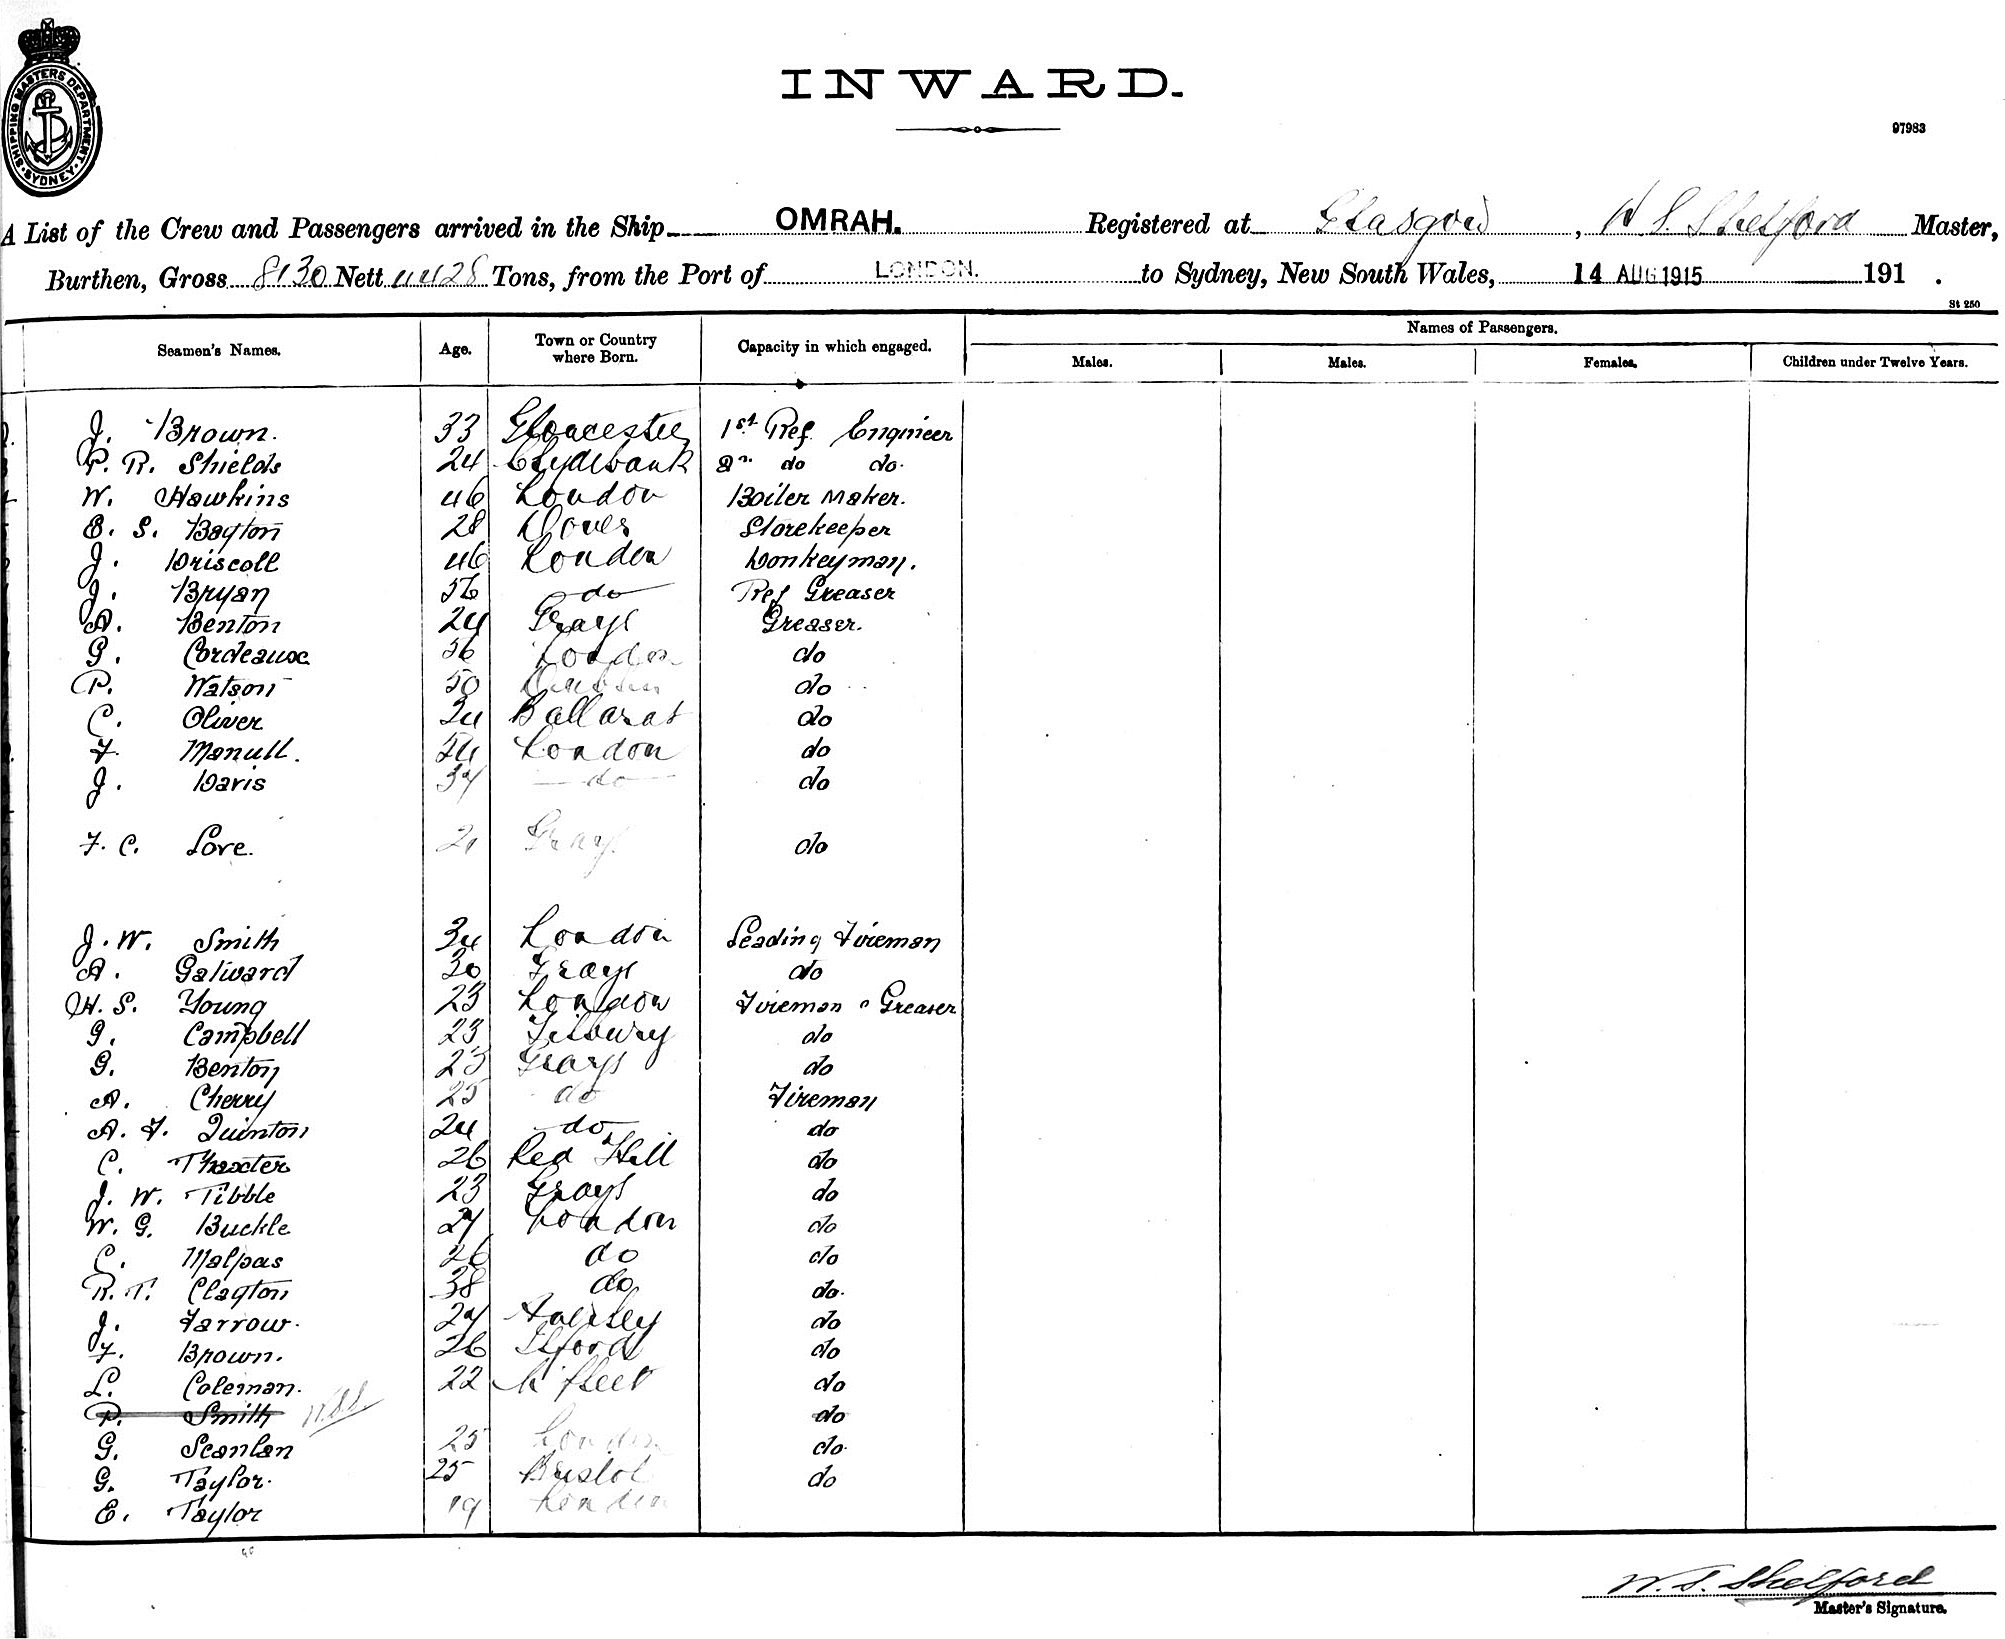 SHIPPING MASTERS DEPARTMENT · SYDNEY ·
INWARD.
97983
A List of the Crew and Passengers arrived in the Ship OMRAH. Registered at Glasgow, W S Shelford Master,
Burthen, Gross 8130 Nett 4428 Tons, from the Port of LONDON. to Sydney, New South Wales, 14 AUG 1915 191 .
St 250
Names of Passengers.
Seamen's Names. Age. Town or Country where Born. Capacity in which engaged. Males. Males. Females. Children under Twelve Years.
J. Brown. 33 Gloucester 1st Ref. Engineer
P. R. Shields 24 Clydebank 2n do do.
W. Hawkins 46 London Boiler Maker.
E. S. Bayton 28 Dover Storekeeper
J. Driscoll 46 London Donkeyman.
J. Bryan 56 do Ref Greaser
A. Benton 24 Grays Greaser.
G. Cordeaux 56 London do
P. Watson 50 Dublin do
C. Oliver 34 Ballarat do
F. Manull. 54 London do
J. Davis 37 do do
F. C. Love. 21 Grays do
J. W. Smith 34 London Leading Fireman
A. Galward 30 Grays do
H. S. Young 23 London Fireman & Greaser
G. Campbell 23 Tilbury do
G. Benton 23 Grays do
A. Cherry 25 do Fireman
A. F. Quinton 24 do do
C. Thaxter 26 Red Hill do
J. W. Tibble 23 Grays do
W. G. Buckle 27 London do
C. Malpas 26 do do
R. T. Clayton 38 do do.
J. Farrow. 27 Aveley do
F. Brown. 26 Ilford do
L. Coleman. 22 N'fleet do
P. Smith do
G. Scanlan 25 London do.
G. Taylor. 25 Bristol do
E. Taylor 19 London
W. S. Shelford
Master's Signature.